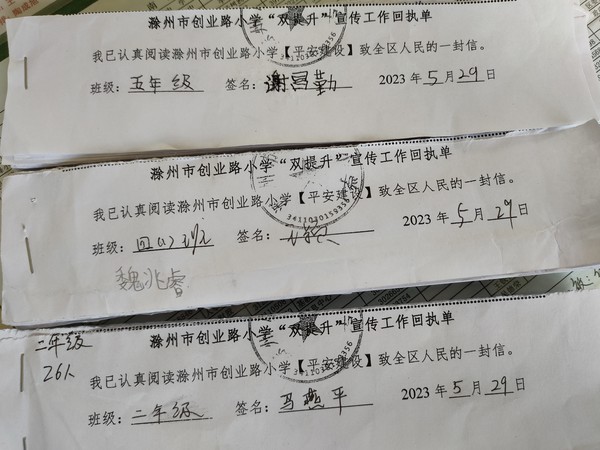 滁州市创业路小学“双提升”宣传工作回执单
我已认真阅读滁州市创业路小学【平安建设】致全区人民的一封信。
班级：五年级 签名：谢昌勤 2023年5月29日
3411030159356
滁州市创业路小学“双提升”宣传工作回执单
我已认真阅读滁州市创业路小学【平安建设】致全区人民的一封信。
班级：四(1)班 签名： 2023年5月29日
3411030159356
魏兆睿
滁州市创业路小学“双提升”宣传工作回执单
二年级
26人
我已认真阅读滁州市创业路小学【平安建设】致全区人民的一封信。
班级：二年级 签名：马燕平 2023年5月29日